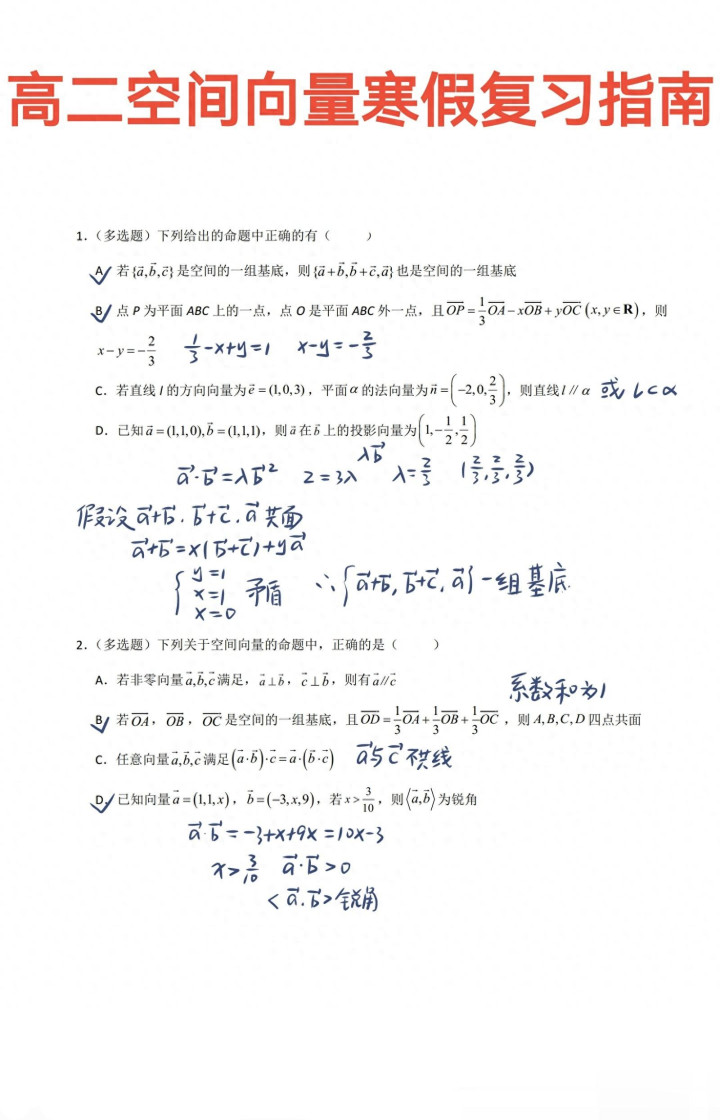 高二空间向量寒假复习指南
1.（多选题）下列给出的命题中正确的有（ ）
A. 若{a⃗,b⃗,c⃗}是空间的一组基底，则{a⃗+b⃗,b⃗+c⃗,a⃗}也是空间的一组基底
B. 点 P 为平面 ABC 上的一点，点 O 是平面 ABC 外一点，且OP=1/3OA−xOB+yOC(x,y∈R)，则
x−y=−2/3 1/3-x+y=1 x-y=-2/3
C. 若直线 l 的方向向量为e⃗=(1,0,3)，平面α的法向量为n⃗=(−2,0,2/3)，则直线l∥α 或 l⊂α
D. 已知a⃗=(1,1,0),b⃗=(1,1,1)，则a⃗在b⃗上的投影向量为(1,−1/2,1/2)
λb⃗
a⃗·b⃗=λb⃗² 2=3λ λ=2/3 (2/3,2/3,2/3)
假设a⃗+b⃗.b⃗+c⃗.a⃗共面
a⃗+b⃗=x(b⃗+c⃗)+ya⃗
y=1
x=1 矛盾 ∴{a⃗+b⃗,b⃗+c⃗,a⃗}一组基底
x=0
2.（多选题）下列关于空间向量的命题中，正确的是（ ）
A. 若非零向量a⃗,b⃗,c⃗满足，a⃗⊥b⃗，c⃗⊥b⃗，则有a⃗∥c⃗
系数和为1
B. 若OA，OB，OC是空间的一组基底，且OD=1/3OA+1/3OB+1/3OC，则 A,B,C,D 四点共面
C. 任意向量a⃗,b⃗,c⃗满足(a⃗·b⃗)·c⃗=a⃗·(b⃗·c⃗) a⃗与c⃗不共线
D. 已知向量a⃗=(1,1,x)，b⃗=(−3,x,9)，若x>3/10，则⟨a⃗,b⃗⟩为锐角
a⃗·b⃗=-3+x+9x=10x-3
x>3/10 a⃗·b⃗>0
<a⃗.b⃗>锐角